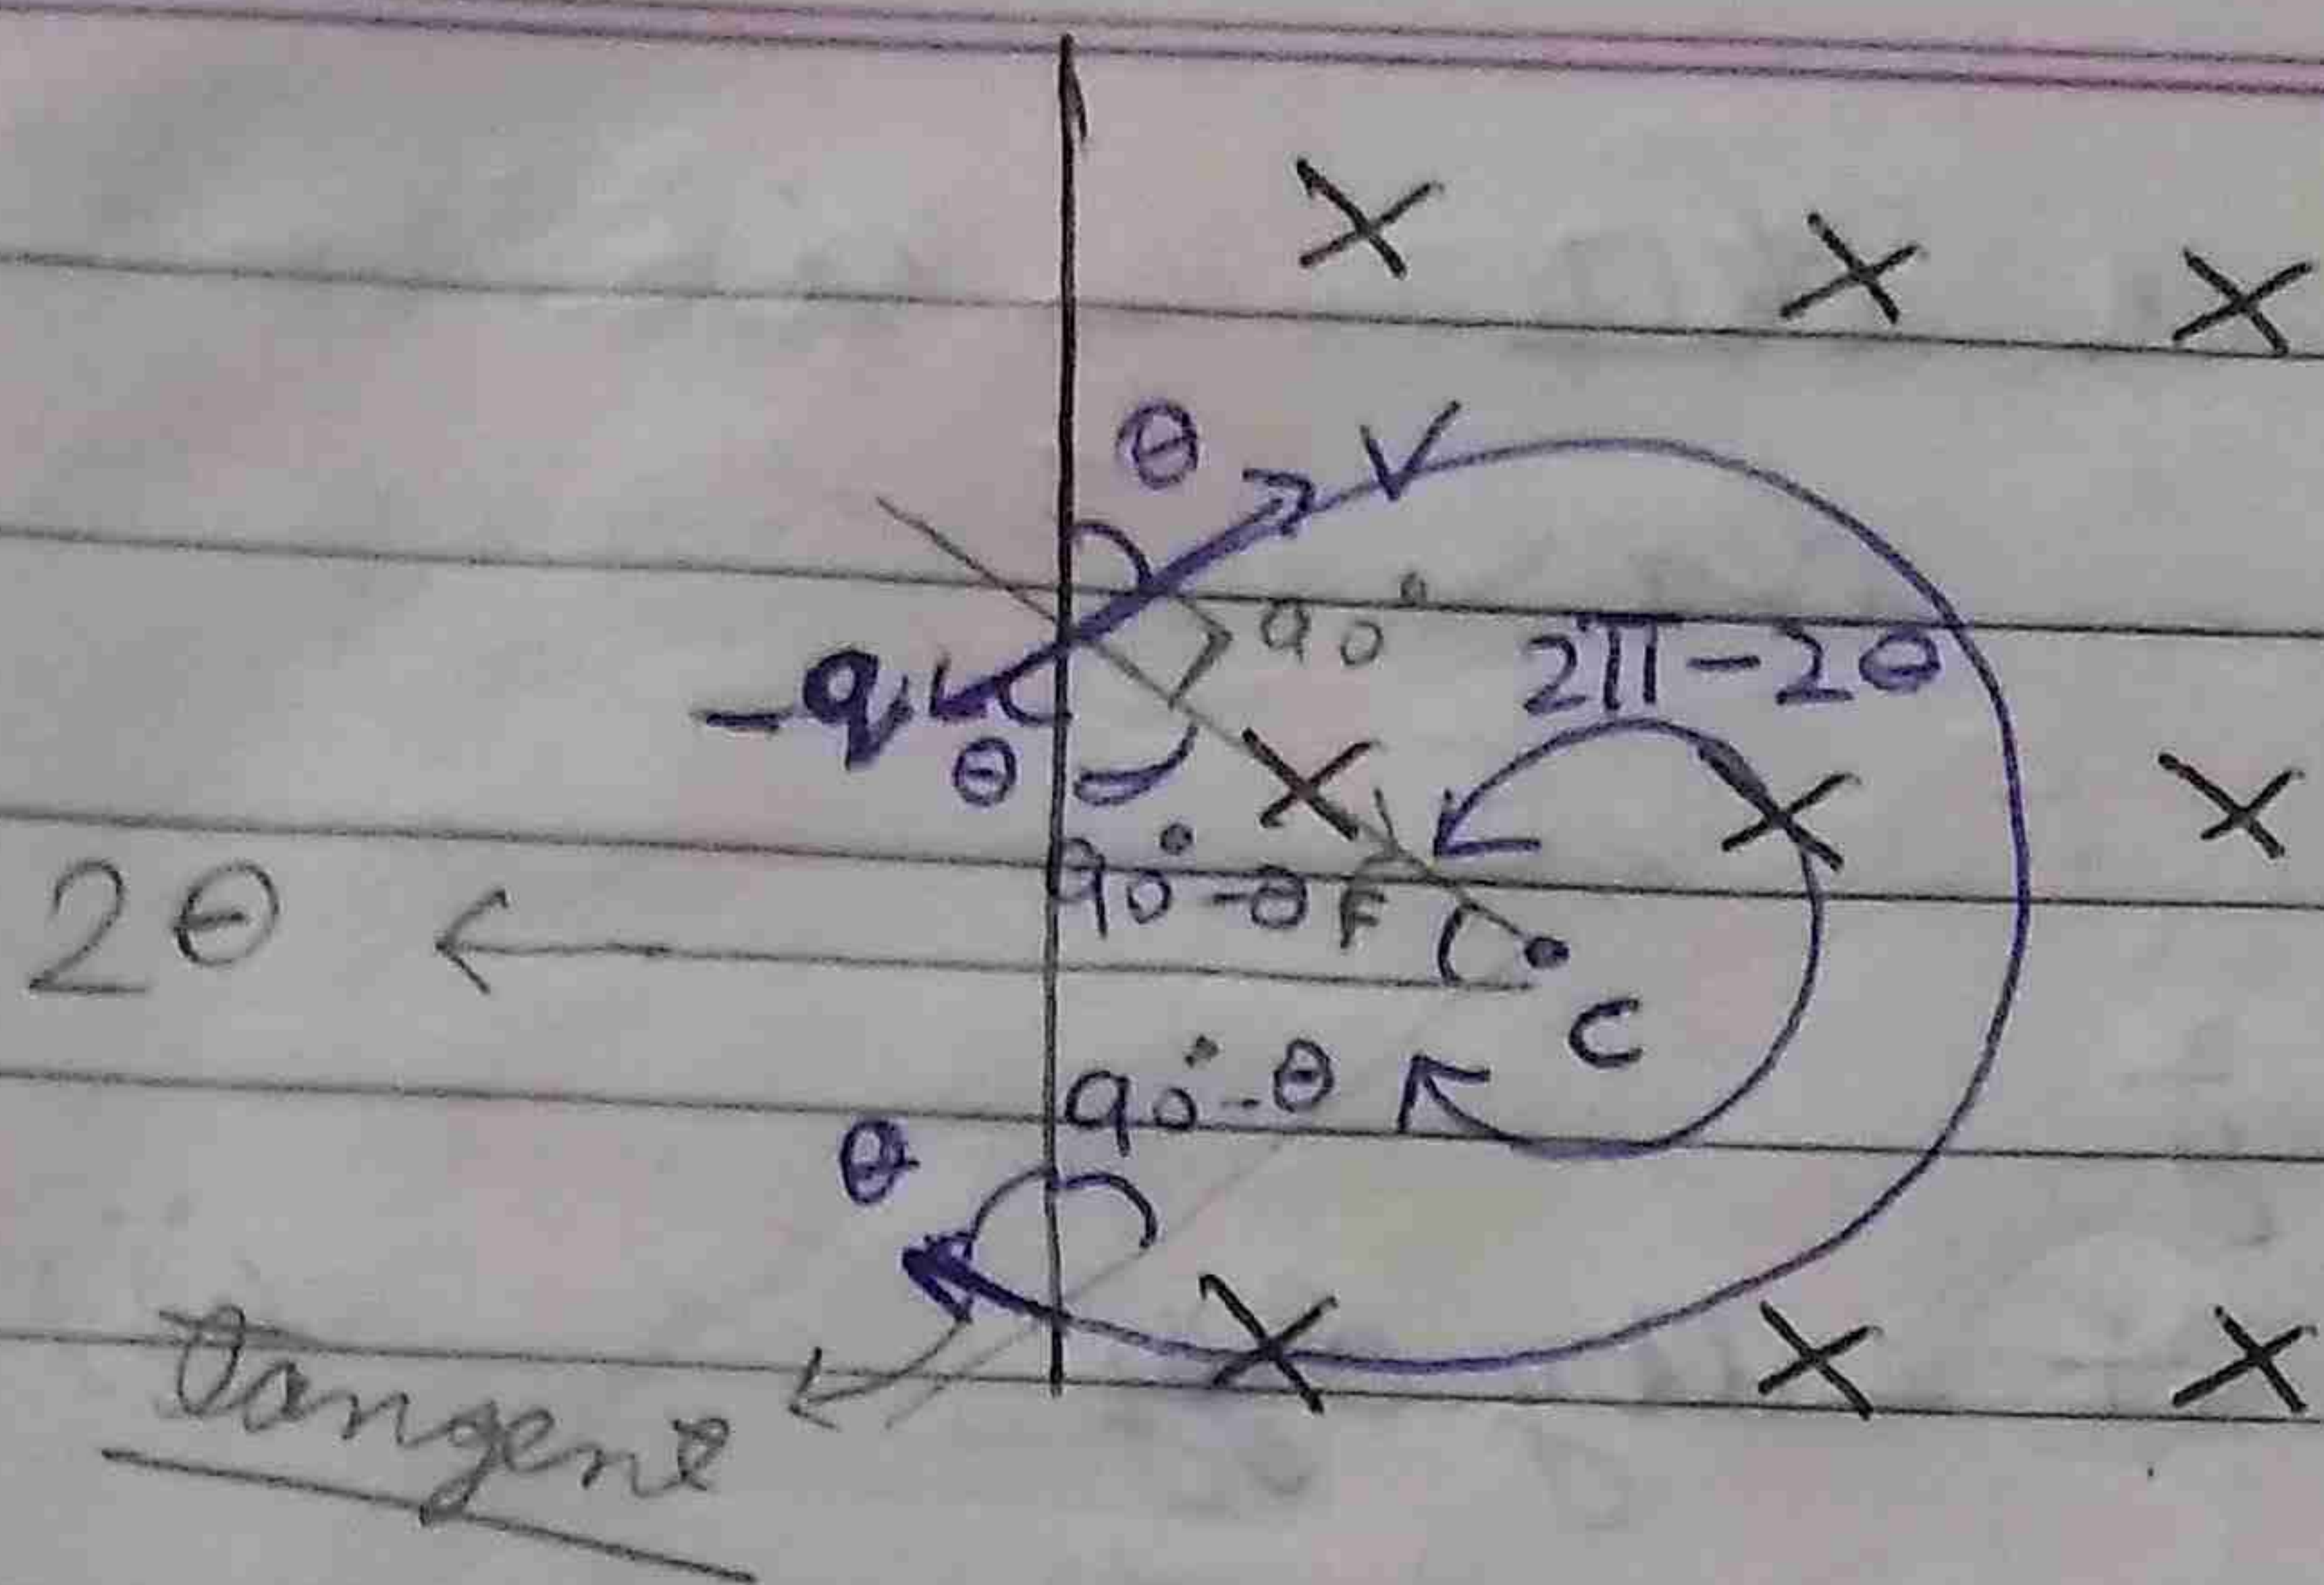 θ V
90°
2π-2θ
-q
θ
90°-θ F
2θ
C
90°-θ
θ
tangent